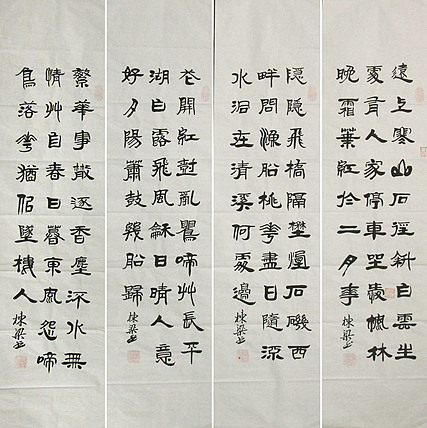 遠上寒山石徑斜白雲生
處有人家停車坐愛楓林
晚霜葉紅於二月花
棟梁书
隱隱飛橋隔野煙石磯西
畔問漁船桃花盡日隨流
水洞在清溪何處邊
棟梁书
花開紅樹亂鶯啼艸長平
湖白鷺飛風龢日晴人意
好夕陽簫鼓幾船歸
棟梁书
繁華事散逐香塵流水無
情艸自春日暮東風怨啼
鳥落花猶似墜樓人
棟梁书